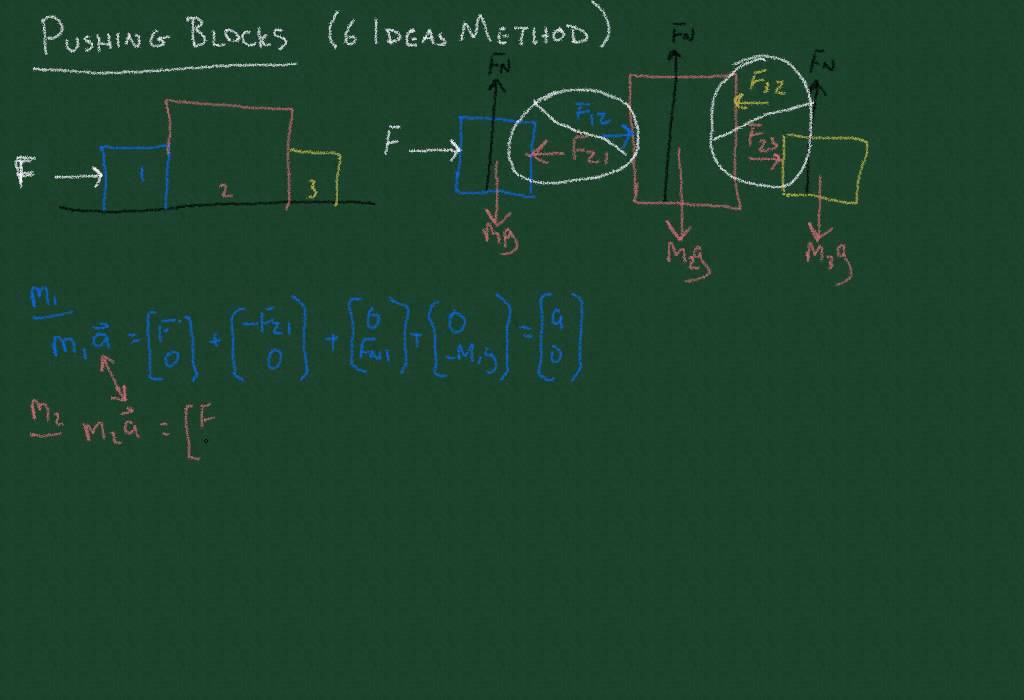 PUSHING BLOCKS (6 IDEAS METHOD)
F 1 2 3
F FN F12 F21 FN F32 F23 FN
Mg M2g M3g
m1
m1 a⃗ = [F 0] + [-F21 0] + [0 FN1] + [0 -M1g] = [a 0]
m2 m2 a⃗ = [F